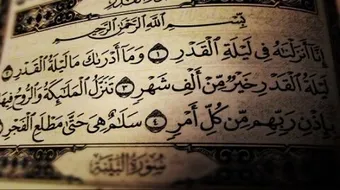 بِسْمِ اللَّهِ الرَّحْمَٰنِ الرَّحِيمِ
إِنَّا أَنزَلْنَاهُ فِي لَيْلَةِ الْقَدْرِ ١ وَمَا أَدْرَاكَ مَا لَيْلَةُ الْقَدْرِ ٢
لَيْلَةُ الْقَدْرِ خَيْرٌ مِّنْ أَلْفِ شَهْرٍ ٣ تَنَزَّلُ الْمَلَائِكَةُ وَالرُّوحُ فِيهَا
بِإِذْنِ رَبِّهِم مِّن كُلِّ أَمْرٍ ٤ سَلَامٌ هِيَ حَتَّىٰ مَطْلَعِ الْفَجْرِ
سُورَةُ الْبَيِّنَةِ